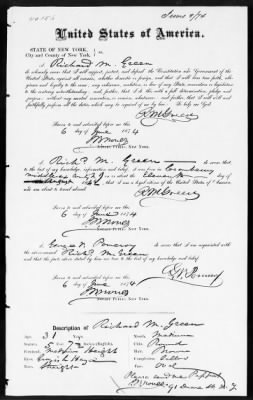 June 9/74
United States of America.
STATE OF NEW YORK,
City and County of New York,
I, Richard M. Green
do solemnly swear that I will support, protect and defend the Constitution and Government of the
United States against all enemies, whether domestic or foreign, and that I will bear true faith, alle-
giance and loyalty to the same, any ordinance, resolution or law of any State, convention or legislature
to the contrary notwithstanding; and further, that I do this with a full determination, pledge and
purpose, without any mental reservation or evasion whatsoever; and further, that I will well and
faithfully perform all the duties which may be required of me by law. So help me God.
R M Green
Sworn to and subscribed before me this
6 day of June 1874
NOTARY PUBLIC, NEW YORK.
I, Richd. M. Green do swear that
to the best of my knowledge, information and belief, I was born in
on the day of
that I am a legal citizen of the United States of America,
and am about to travel abroad.
R M Green
Sworn to and subscribed before me this
6 day of June 1874
NOTARY PUBLIC, NEW YORK.
I, do swear that I am acquainted with
the above-named Richd. M. Green
and that the facts above stated by him are true to the best of my knowledge and belief.
Sworn to and subscribed before me this
6 day of June 1874
NOTARY PUBLIC, NEW YORK.
Description of Richard M. Green
Age, 31 Years Mouth, Medium
Stature, 5 Feet 7½ Inches (English), Chin, Round
Forehead, Medium Height Hair, Brown
Eyes, Hazel Complexion,
Nose, Straight Face, Oval
Please send me Passport